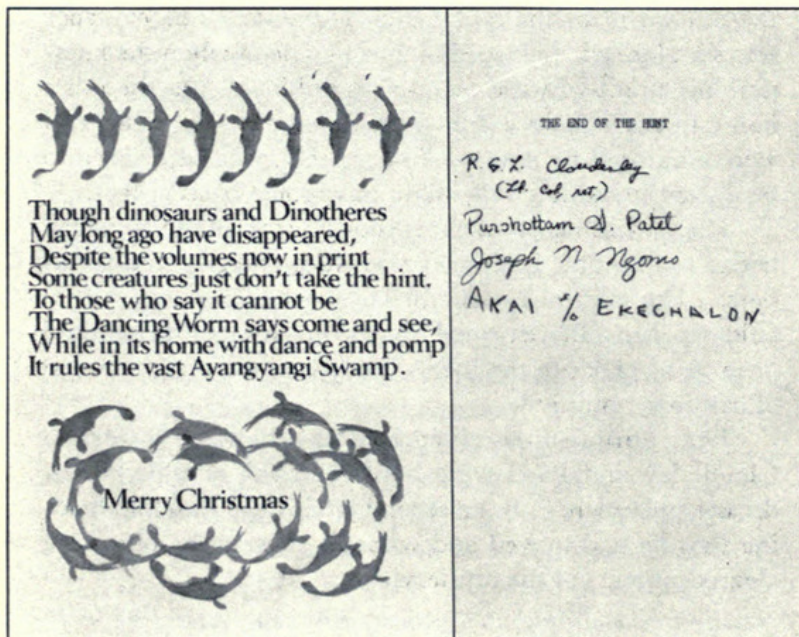 Though dinosaurs and Dinotheres
May long ago have disappeared,
Despite the volumes now in print
Some creatures just don't take the hint.
To those who say it cannot be
The Dancing Worm says come and see,
While in its home with dance and pomp
It rules the vast Ayangyangi Swamp.
Merry Christmas
THE END OF THE HUNT
R. G. L. Cloudesley
(Lt. Col. ret)
Purshottam S. Patel
Joseph N Ngomo
AKAI S/O EKECHALON